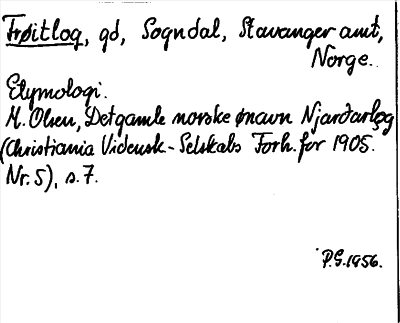 Frøitloq, gd, Sogndal, Stavanger amt,
Norge.
Etymologi.
M. Olsen, Det gamle norske ønavn Njarðarlǫg
(Christiania Vidensk.-Selskabs Forh. for 1905.
Nr. 5), s. 7.
P.G. 1956.